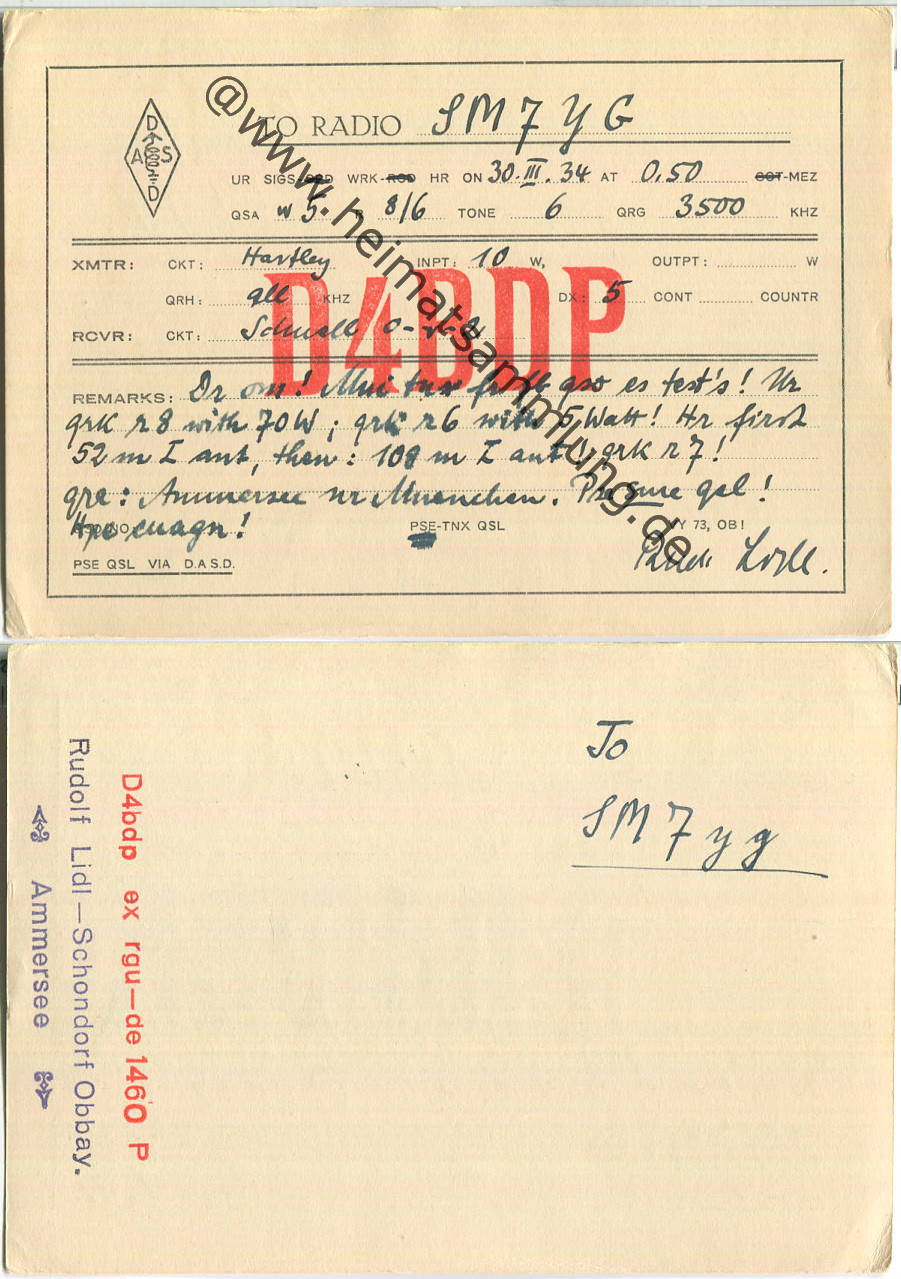 D
A S
D
TO RADIO SM7YG
UR SIGS-CRD WRK-RCD HR ON 30.III.34 AT 0.50 GCT-MEZ
QSA w 5. R 8/6 TONE 6 QRG 3500 KHZ
XMTR: CKT: Hartley INPT: 10 W, OUTPT: W
QRH: all KHZ DX: 5 CONT COUNTR
RCVR: CKT: Schnell 0-v-2
D4BDP
REMARKS: Dr om! Mni tnx fr qso es test's! Ur
qrk r8 with 70W; qrk r6 with 5 Watt! Hr first
52 m Z ant, then: 108 m Z ant! qrk r7!
qra: Ammersee nr Muenchen. Pse sure qsl!
Hpe cuagn!
PSE-TNX QSL VY 73, OB!
PSE QSL VIA D.A.S.D. Rudi Lidl.
@www.heimatsammlung.de
To
SM7yg
D4bdp ex rgu—de 1460 P
Rudolf Lidl—Schondorf Obbay.
Ammersee